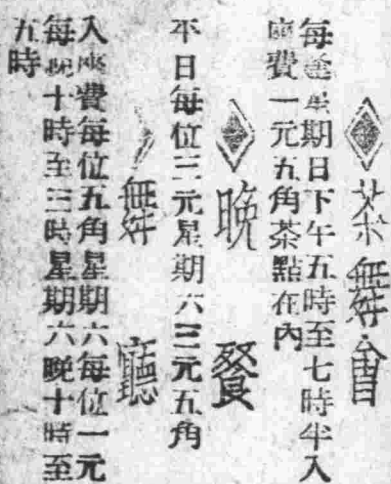 茶舞會
每逢星期日下午五時至七時半入
座費一元五角茶點在內
晚餐
平日每位三元星期六三元五角
舞廳
入座費每位五角星期六每位一元
每晚十時至三時星期六晚十時至
五時